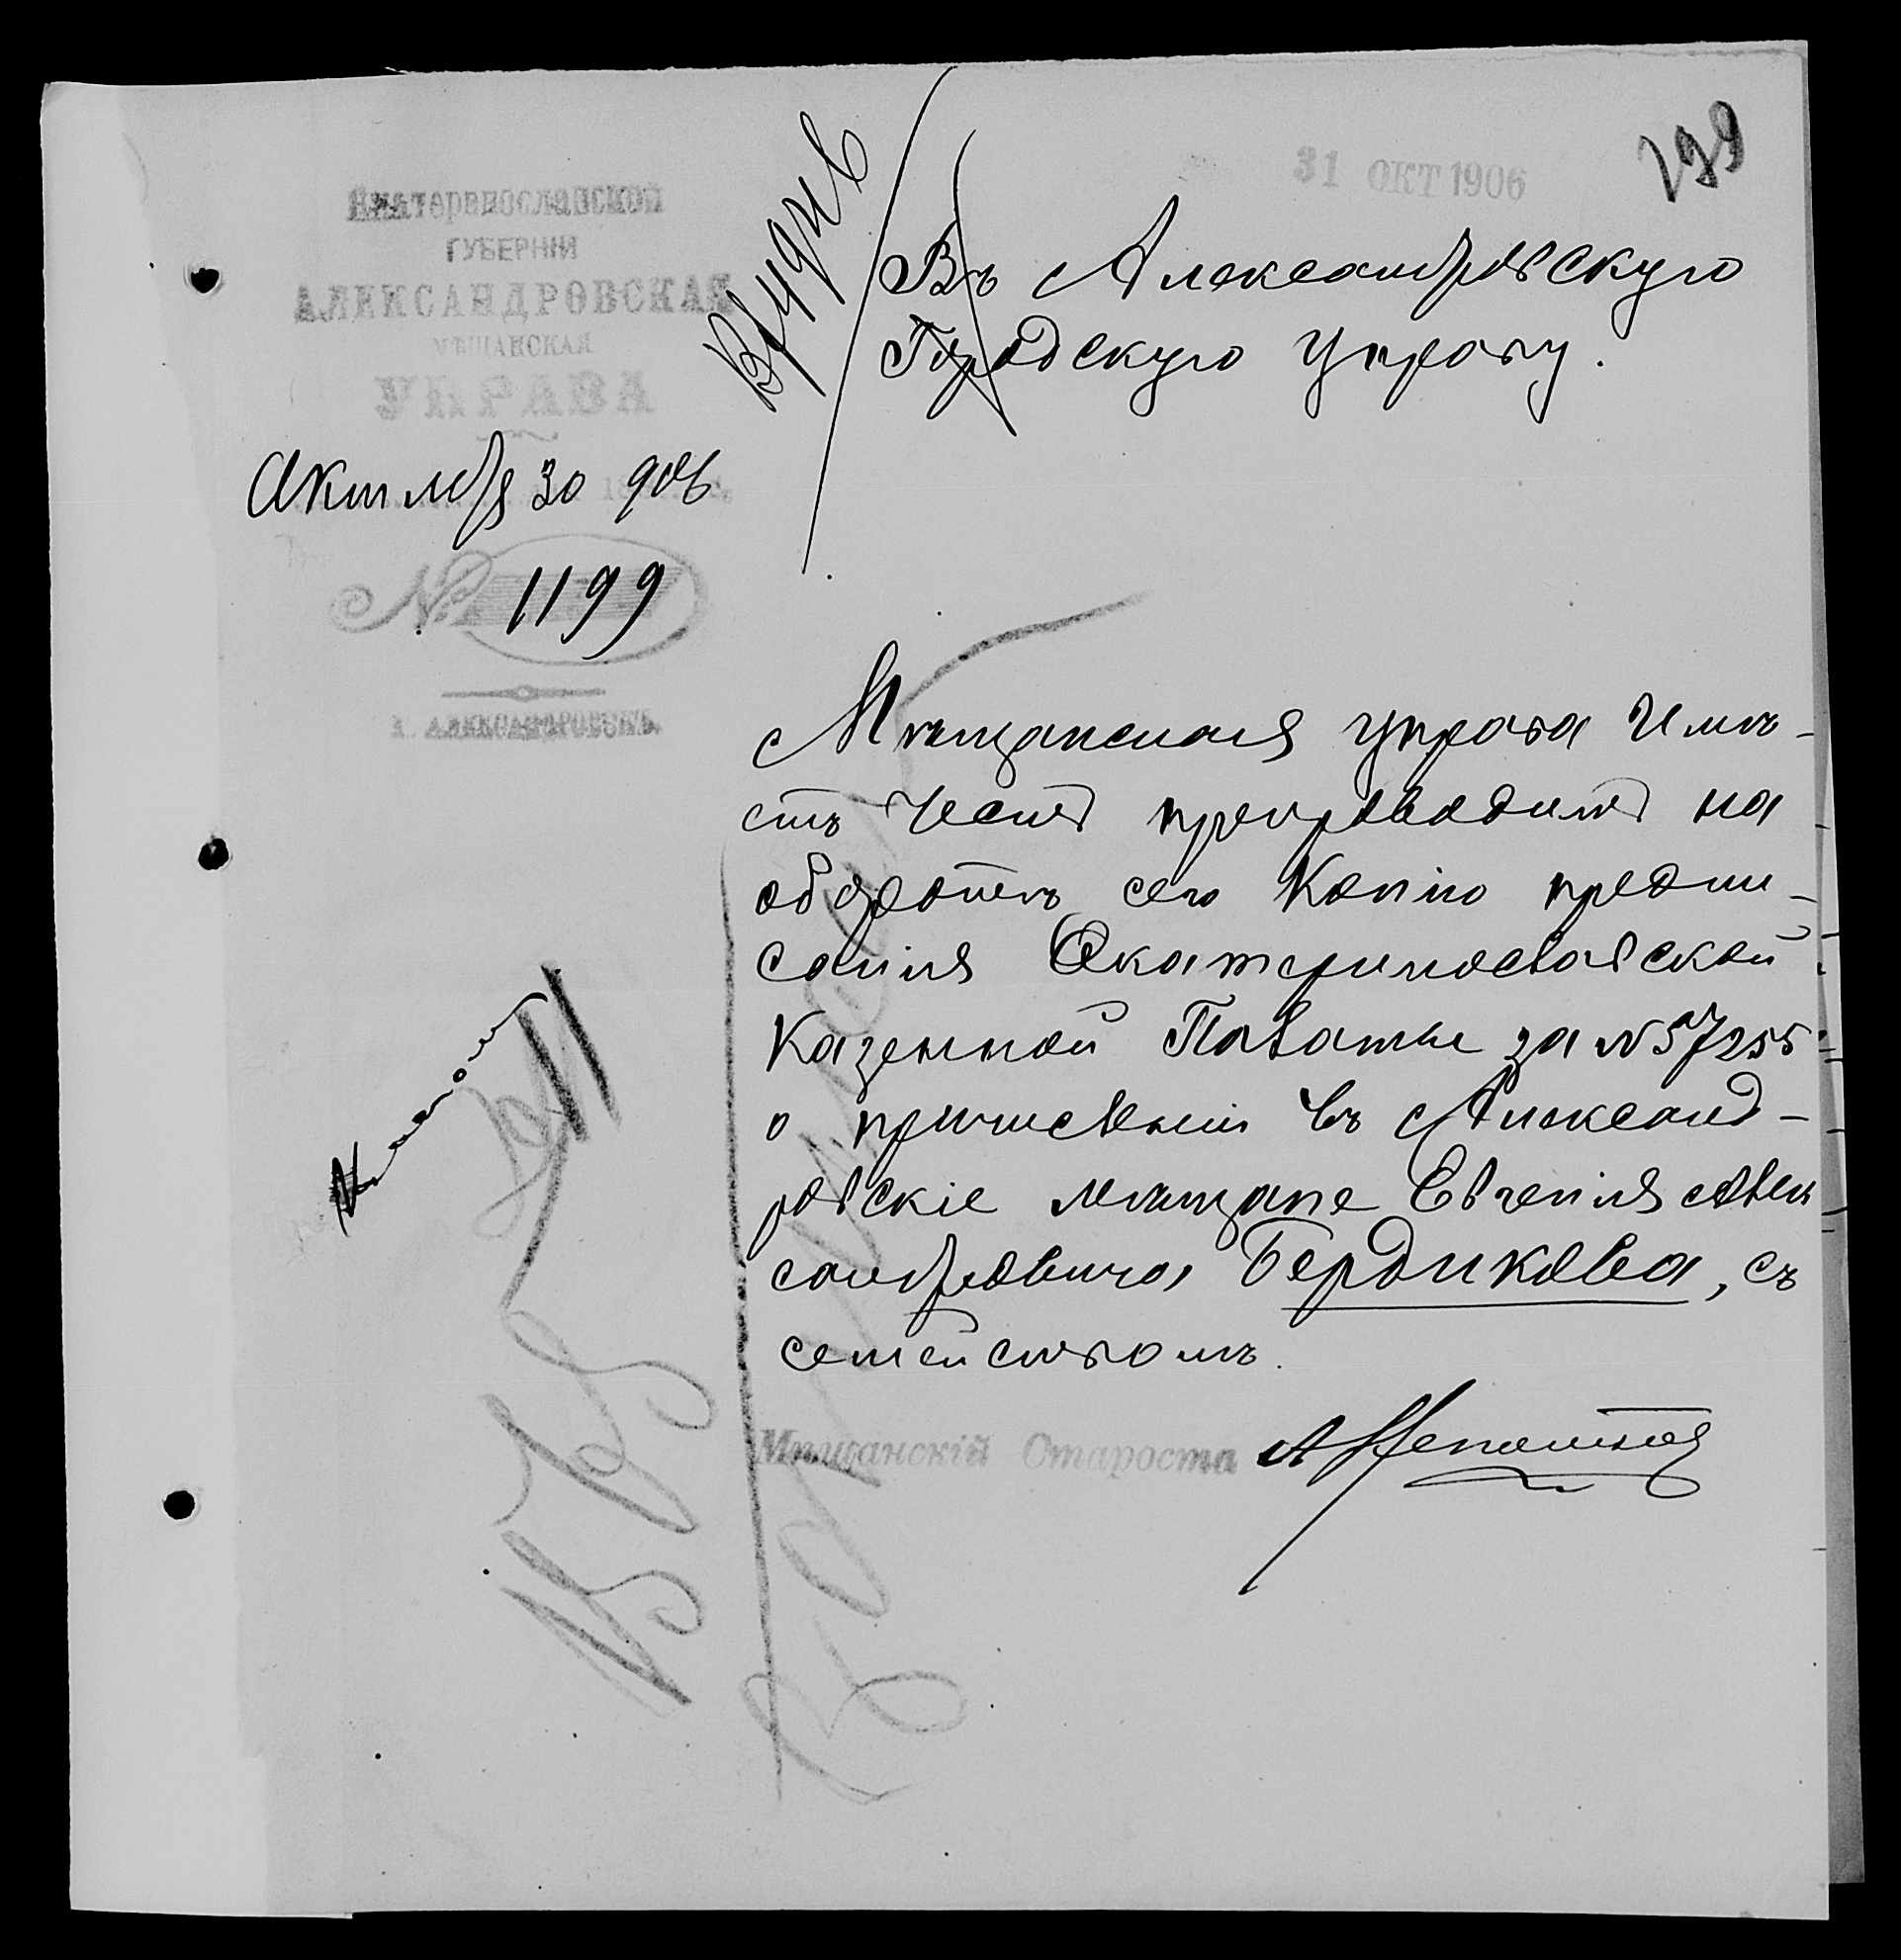 31 ОКТ 1906
Екатеринославской
ГУБЕРНІИ
АЛЕКСАНДРОВСКАЯ
МѢЩАНСКАЯ
УПРАВА
Октября 30 906
№ 1199
г. АЛЕКСАНДРОВСКЪ.
Въ Александровскую
Городскую Управу.
Мѣщанская управа имѣ-
етъ честь препроводить на
оборотѣ сего копію предпи-
санія Екатеринославской
Казенной Палаты за № 57255
о причисленіи въ Александ-
ровскіе мѣщане Евгенія Алек
сандровича Бердикова, съ
семействомъ.
Мѣщанскій Староста